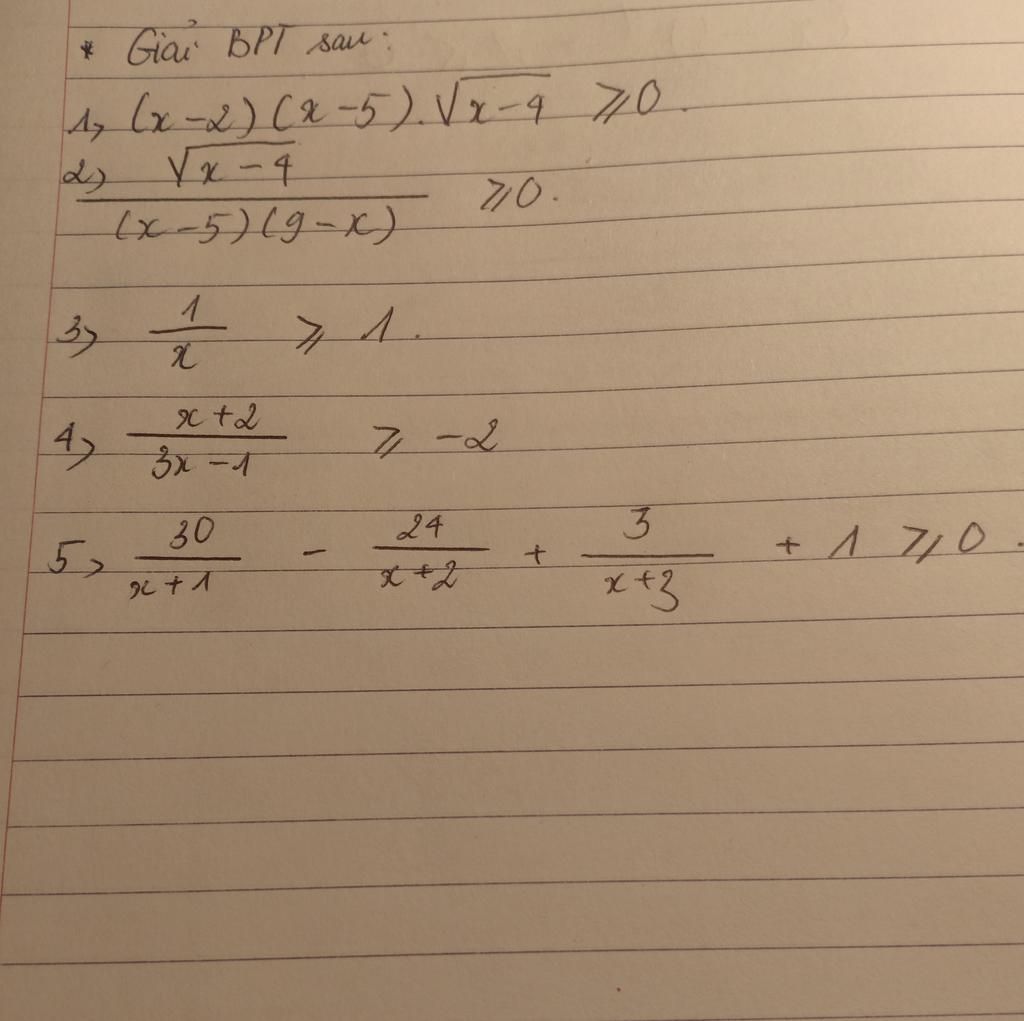 * Giải BPT sau:
1, (x-2)(x-5).√(x-4) ⩾ 0.
2, √(x-4) / (x-5)(9-x) ⩾ 0.
3, 1/x ⩾ 1.
4, (x+2)/(3x-1) ⩾ -2
5, 30/(x+1) - 24/(x+2) + 3/(x+3) + 1 ⩾ 0.